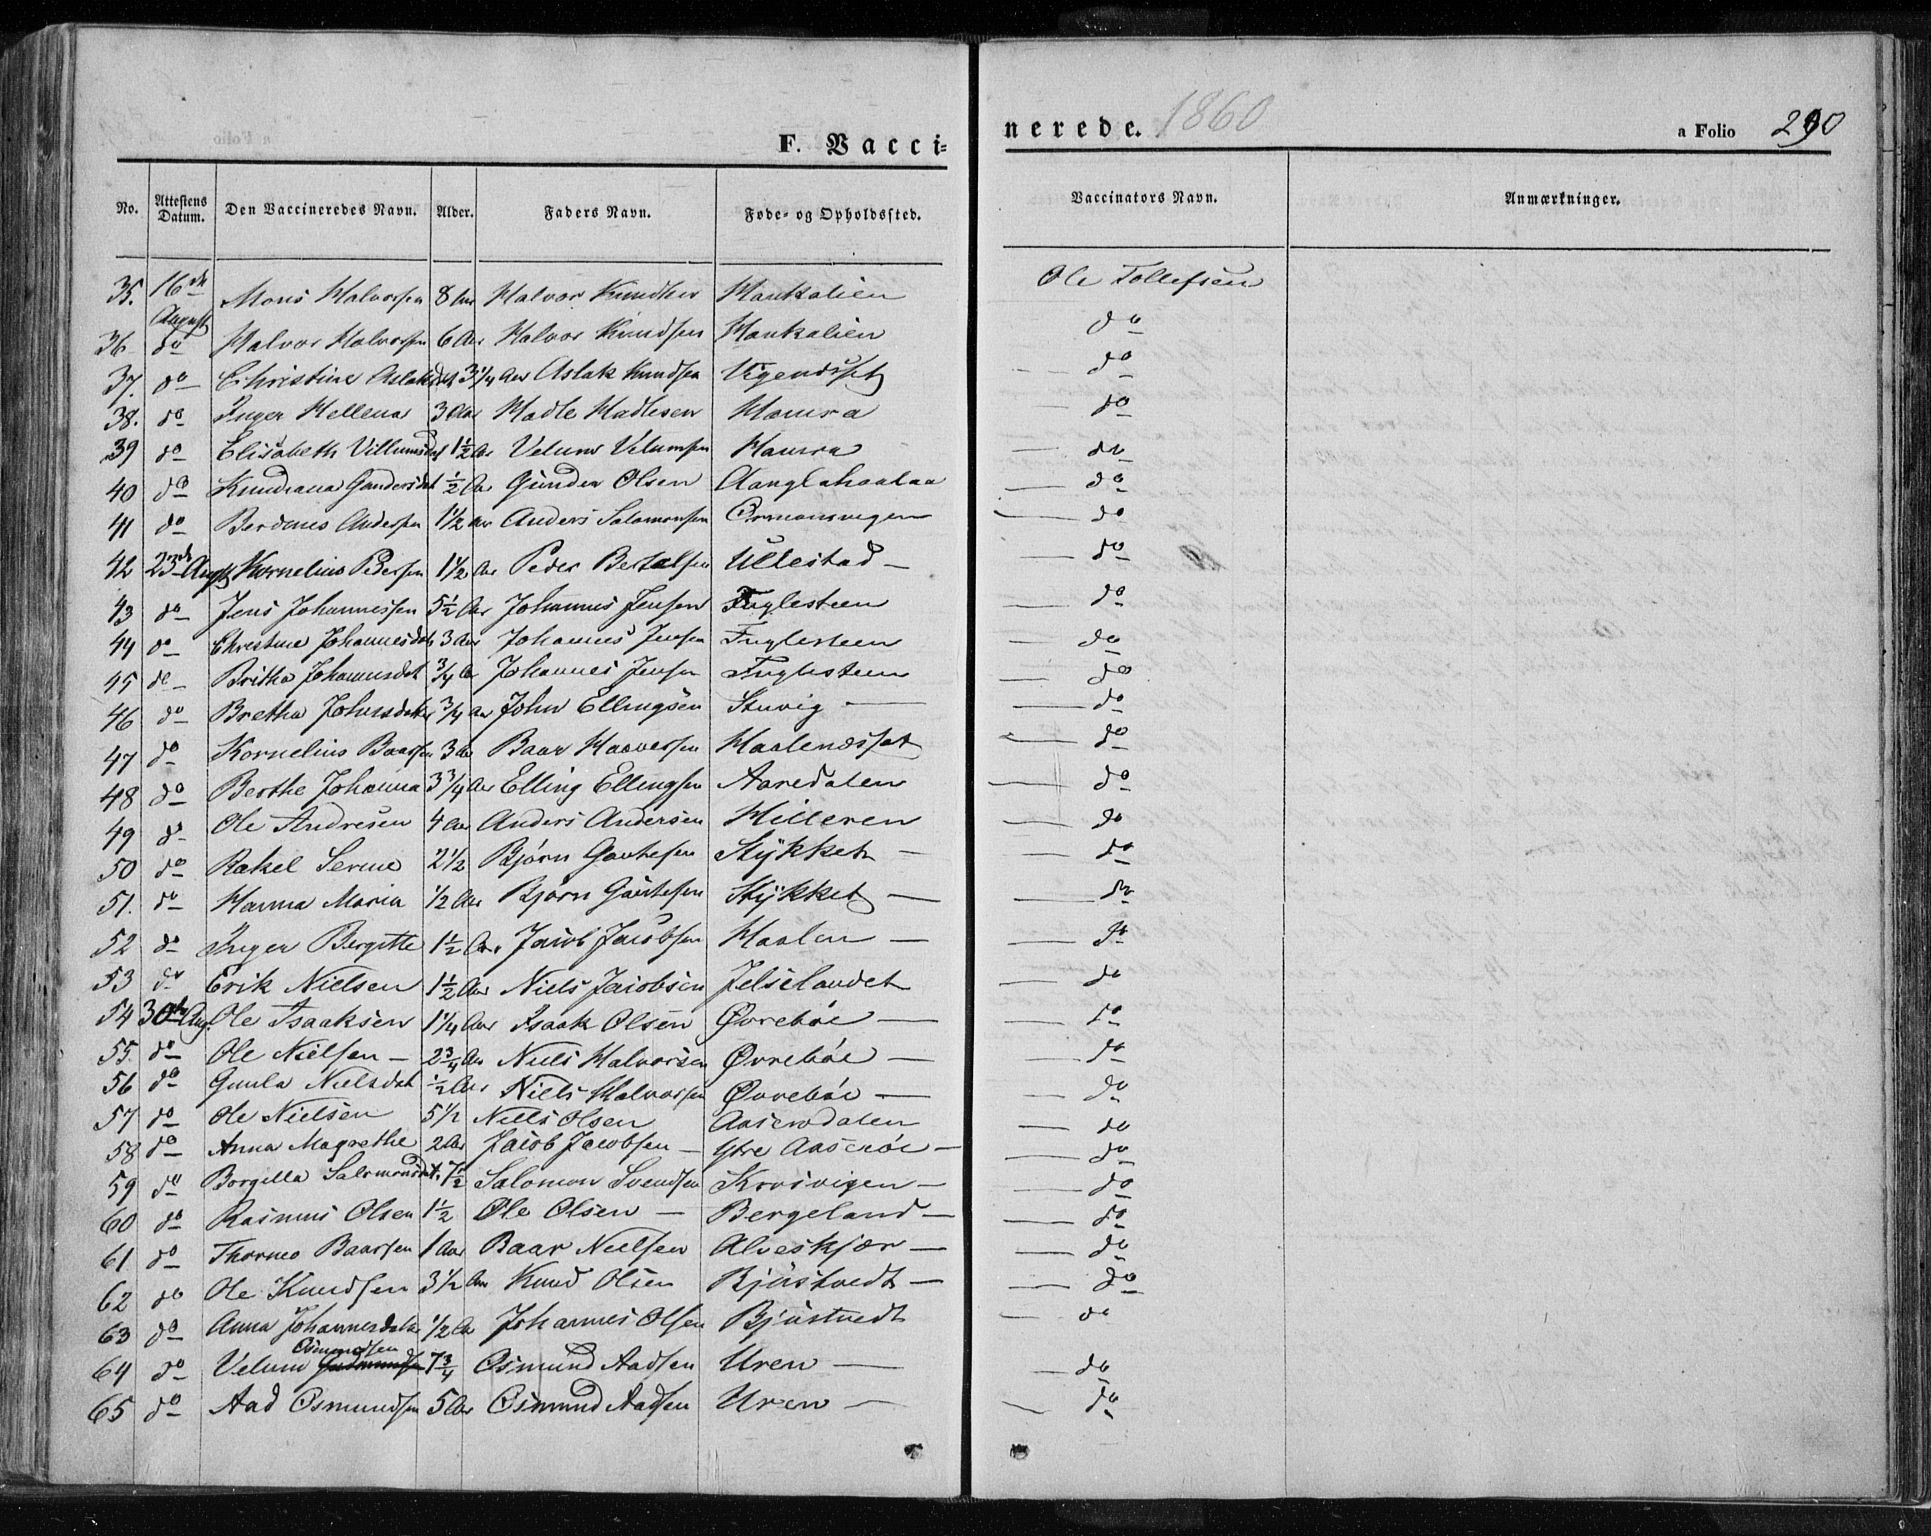 F. Vacci-
nerede. 1860
a Folio 290
No. Attestens Datum. Den Vaccineredes Navn. Alder. Faders Navn. Føde- og Opholdssted. Vaccinators Navn. Anmærkninger.
35. 16de August Mons Halvorsen 8 Aar Halvor Knudsen Haukalien Ole Tollefsen
36 do Halvor Halvorsen 6 Aar Halvor Knudsen Haukalien do
37. do Christine Aslaksdt 3 1/4 Aar Aslak Knudsen do
38. do Inger Hellena 3 Aar Hadle Hadlesen Hamra do
39 do Elisabeth Villumsdt 1 1/2 Aar Velum Velumsen Hamra do
40 do Knudiana Gundersdat 1/2 Aar Gunder Olsen do
41 do Andersen 1 1/2 Aar Anders Salomonsen do
42 23de Augst Kornelius Pedersen 1 1/2 Aar Peder Bertelsen Ullestad — do
43 do Jens Johannessen 5 1/2 Aar Johannes Jensen Fuglesteen do
44 do Christine Johannesdat 3 Aar Johannes Jensen Fuglesteen do
45 do Britha Johannesdat 3/4 Aar Johannes Jensen Fuglesteen do
46 do Bretha Johnsdatter 3/4 Aar John Ellingsen Stuvig — do
47 do Kornelius Baarsen 3 Aar Baar Haaversen do
48 do Berthe Johanna 3 3/4 Aar Elling Ellingsen Aaredalen do
49 do Ole Andresen 4 Aar Anders Andersen Hilleren do
50 do Rakel Serine 2 1/2 Bjørn Gautesen Stykket — do
51. do Hanna Maria 1/2 Aar Bjørn Gautesen Stykket — do
52 do Inger Bergitte 1 1/2 Aar Jacob Jacobsen Haalen — do
53 do Erik Nielsen 1 1/2 Aar Niels Jacobsen Jelselandet do
54 30te Aug. Ole Isaaksen 1 1/4 Aar Isaak Olsen Øvrebøe — do
55. do Ole Nielsen — 2 3/4 Aar Niels Halvorsen Øvrebøe — do
56 do Gunla Nielsdat 1/2 Aar Niels Halvorsen Øvrebøe — do
57 do Ole Nielsen 5 1/2 Niels Olsen do
58 do Anna Magrethe 2 Aar Jacob Jacobsen — Ytre — do
59 do Borgilla Salomonsdat. 7 1/2 Salomon Svendsen Krosvigen — do
60 do Rasmus Olsen 1 1/2 Ole Olsen — Bergeland — do
61 do Baarsen 1 Aar Baar Nielsen Alveskjær — do
62 do Ole Knudsen 3 1/2 Aar Knud Olsen Bjustvedt — do
63 do Anna Johannesdatter 1/2 Aar Johannes Olsen Bjustvedt do
64 do Velum Osmundsen 7 3/4 Osmund Aadsen Uren — do
65 do Aad Osmundsen 5 Aar Osmund Aadsen Uren — do